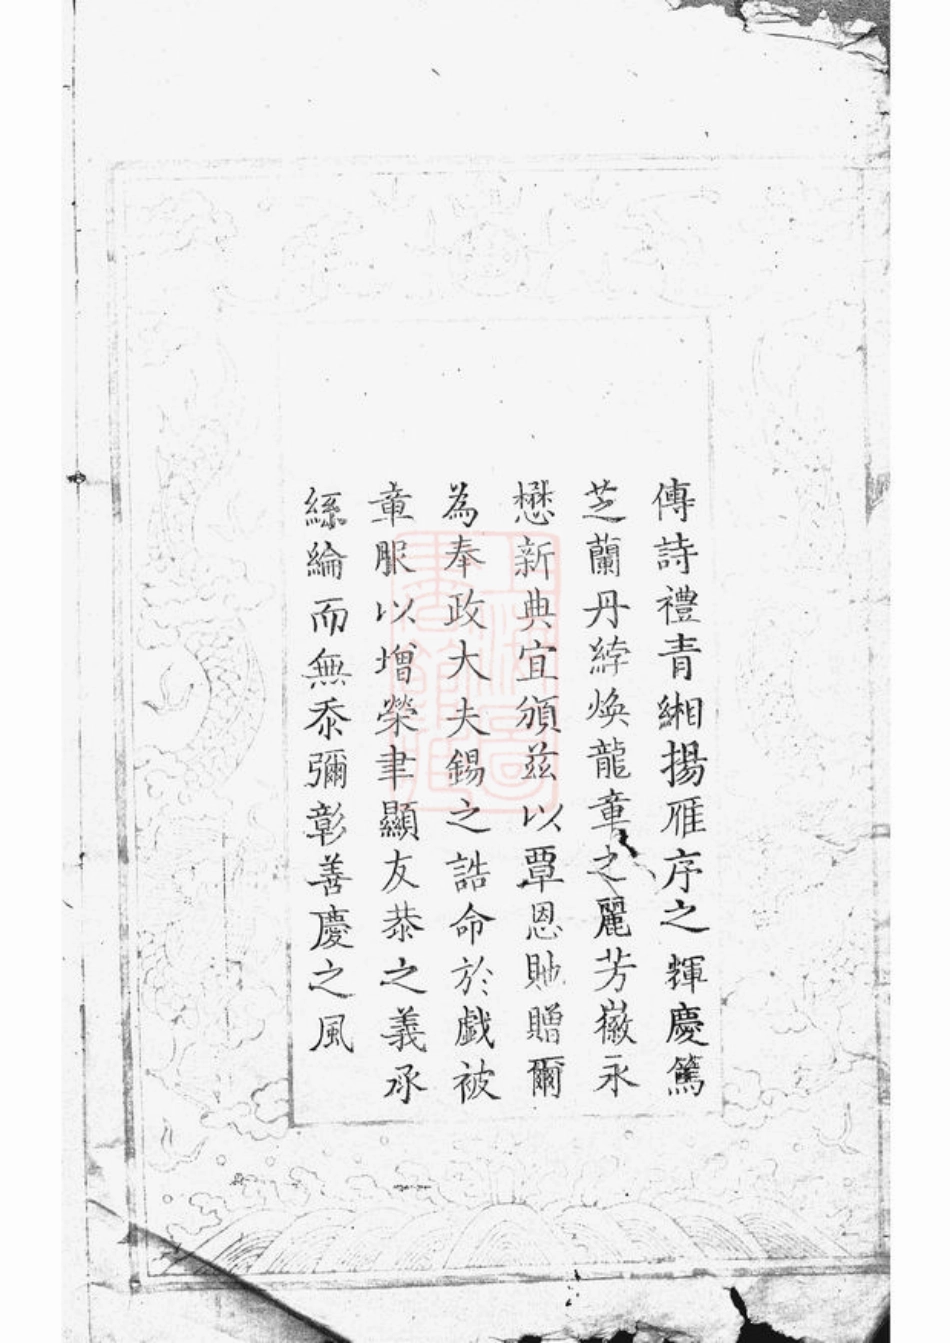 傳詩禮青緗揚雁序之輝慶篤
芝蘭丹綍煥龍章之麗芳徽永
懋新典宜頒茲以覃恩貤贈爾
為奉政大夫錫之誥命於戲被
章服以增榮聿顯友恭之義承
絲綸而無忝彌彰善慶之風